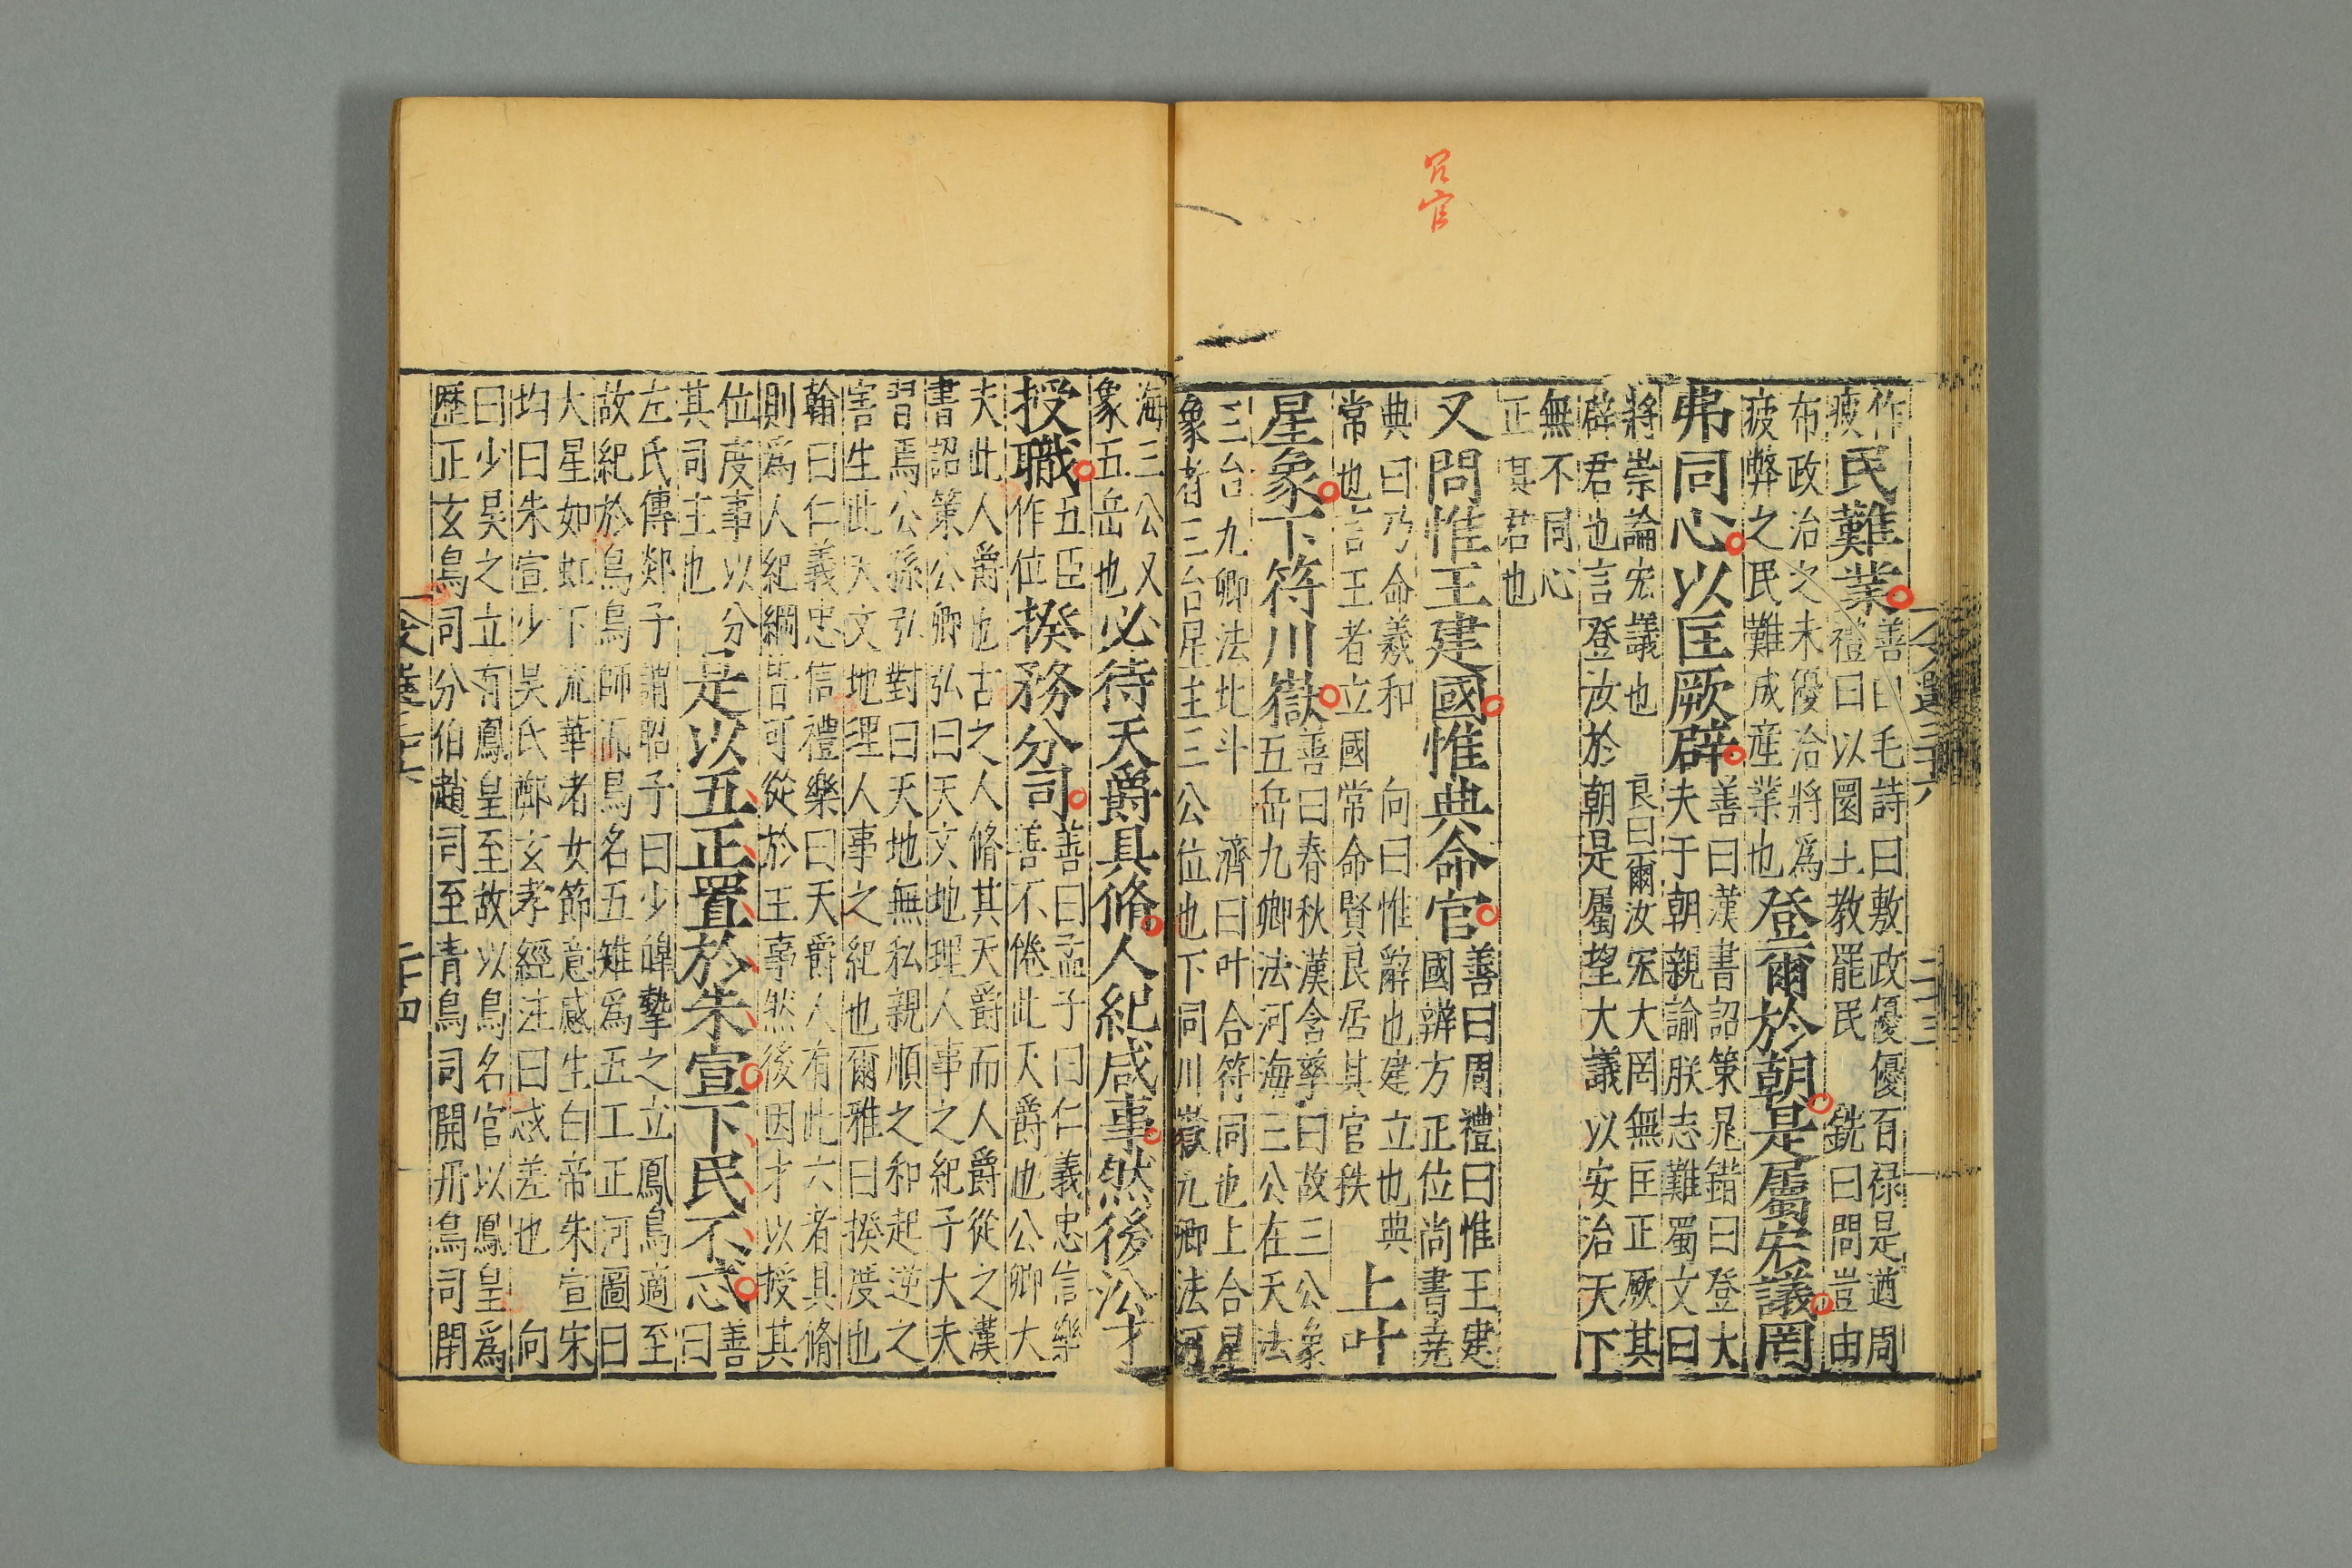 文選三十六 二十三
作
疲
民難業
善曰毛詩曰敷政優優百祿是遒周
禮曰以圜土教罷民 銑曰問豈由
布政治之未優洽將爲
疲弊之民難成産業也
登爾於朝是屬宏議罔
弗同心以匡厥辟
善曰漢書詔策晁錯曰登大
夫于朝親諭朕志難蜀文曰
將崇論宏議也 良曰爾汝宏大罔無匡正厥其
辟君也言登汝於朝是屬望大議以安治天下
無不同心
正其君也
官
又問惟王建國惟典命官
善曰周禮曰惟王建
國辨方正位尚書堯
典曰乃命羲和 向曰惟辭也建立也典
常也言王者立國常命賢良居其官秩
上叶
星象下符川嶽
善曰春秋漢含孳曰故三公象
五岳九卿法河海三公在天法
三台九卿法北斗 濟曰叶合符同也上合星
象者三台星主三公位也下同川嶽九卿法河
海三公又
象五岳也
必待天爵具脩人紀咸事然後㳂才
授職
五臣
作位
揆務分司
善曰孟子曰仁義忠信樂
善不倦此天爵也公卿大
夫此人爵也古之人脩其天爵而人爵從之漢
書詔策公卿弘曰天文地理人事之紀子大夫
習焉公孫弘對曰天地無私親順之和起逆之
害生此天文地理人事之紀也爾雅曰揆度也
翰曰仁義忠信禮樂曰天爵人有此六者具脩
則爲人紀綱皆可從於王事然後因才以授其
位度事以分
其司主也
是以五正置於朱宣下民不忒
善
曰
左氏傳郯子謂昭子曰少皡摯之立鳳鳥適至
故紀於鳥鳥師而鳥名五雉爲五工正河圖曰
大星如虹下流華者女節意感生白帝朱宣宋
均曰朱宣少昊氏鄭玄孝經注曰忒差也 向
曰少昊之立有鳳皇至故以鳥名官以鳳皇爲
歷正玄鳥司分伯趙司至青鳥司開丹鳥司閉
文選三十六 二十四